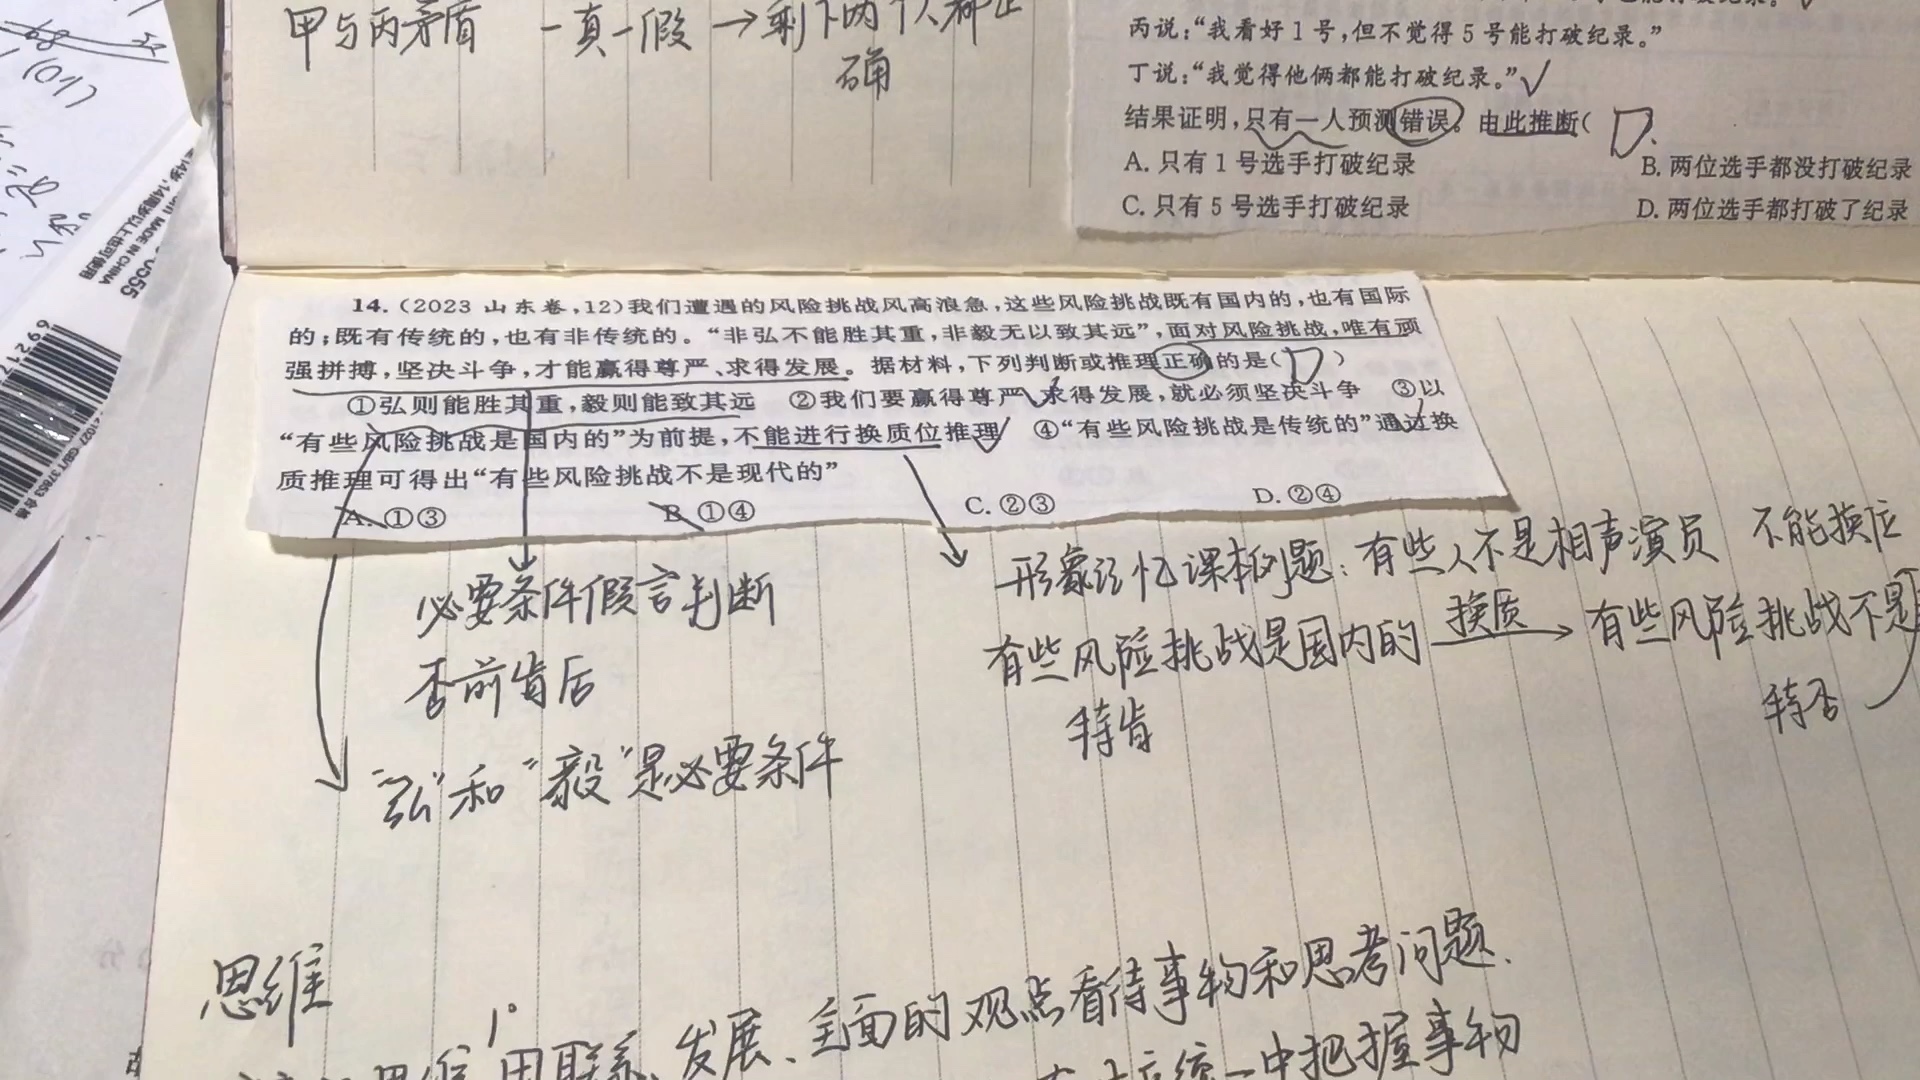 甲与丙矛盾 一真一假 →剩下两个人都正
确
丙说:“我看好1号,但不觉得5号能打破纪录。”
丁说:“我觉得他俩都能打破纪录。”✓
结果证明,只有一人预测错误。由此推断( D.
A. 只有1号选手打破纪录 B. 两位选手都没打破纪录
C. 只有5号选手打破纪录 D. 两位选手都打破了纪录
14. (2023 山东卷,12)我们遭遇的风险挑战风高浪急,这些风险挑战既有国内的,也有国际
的;既有传统的,也有非传统的。“非弘不能胜其重,非毅无以致其远”,面对风险挑战,唯有顽
强拼搏,坚决斗争,才能赢得尊严、求得发展。据材料,下列判断或推理正确的是( D )
①弘则能胜其重,毅则能致其远 ②我们要赢得尊严、求得发展,就必须坚决斗争 ③以
“有些风险挑战是国内的”为前提,不能进行换质位推理 ④“有些风险挑战是传统的”通过换
质推理可得出“有些风险挑战不是现代的”
A. ①③ B. ①④ C. ②③ D. ②④
必要条件假言判断
否前肯后
“弘”和“毅”是必要条件
形象记忆课本例题:有些人不是相声演员 不能换位
有些风险挑战是国内的 换质→ 有些风险挑战不是
特肯
特否
思维
1°
用联系、发展、全面的观点看待事物和思考问题.
统一中把握事物
MADE IN CHINA
0555